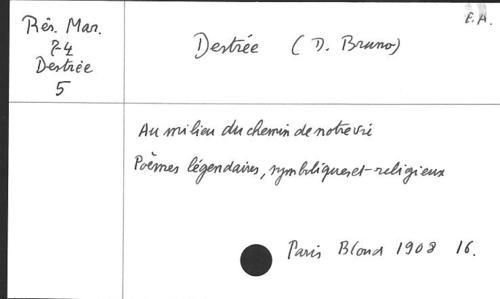 Rés. Mar.
74
Destrée
5
E.A.
Destrée (D. Bruno)
Au milieu du chemin de notre vie
Poèmes légendaires, symboliques et religieux
Paris Bloud 1908 16.